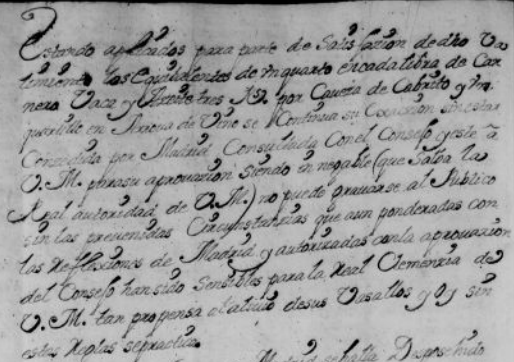 Estando aplicados para parte de Satisfacion de dho Va
limiento los Equibalentes de vn quarto en cada libra de Car
nero Vaca y Azeite tres Rs. por Caveza de Cabrito y vn
quartillo en Arrova de Vino se Continua su Exaccion sin estar
Concedida por Madrid Consultada Con el Consejo y este a
V. M. para su aprovazion siendo inegable (que Salva la
Real autoridad de V. M.) no puede gravarse al Publico
sin las prevenidas Circunstanzias que aun ponderadas con
las Reflexiones de Madrid, y autorizadas con la aprovazion
del Consejo han sido Sensibles para la Real Clemenzia de
V. M. tan propensa al alivio de sus Vasallos y oy sin
estas Reglas se practica
Madrid se halla Desposehido